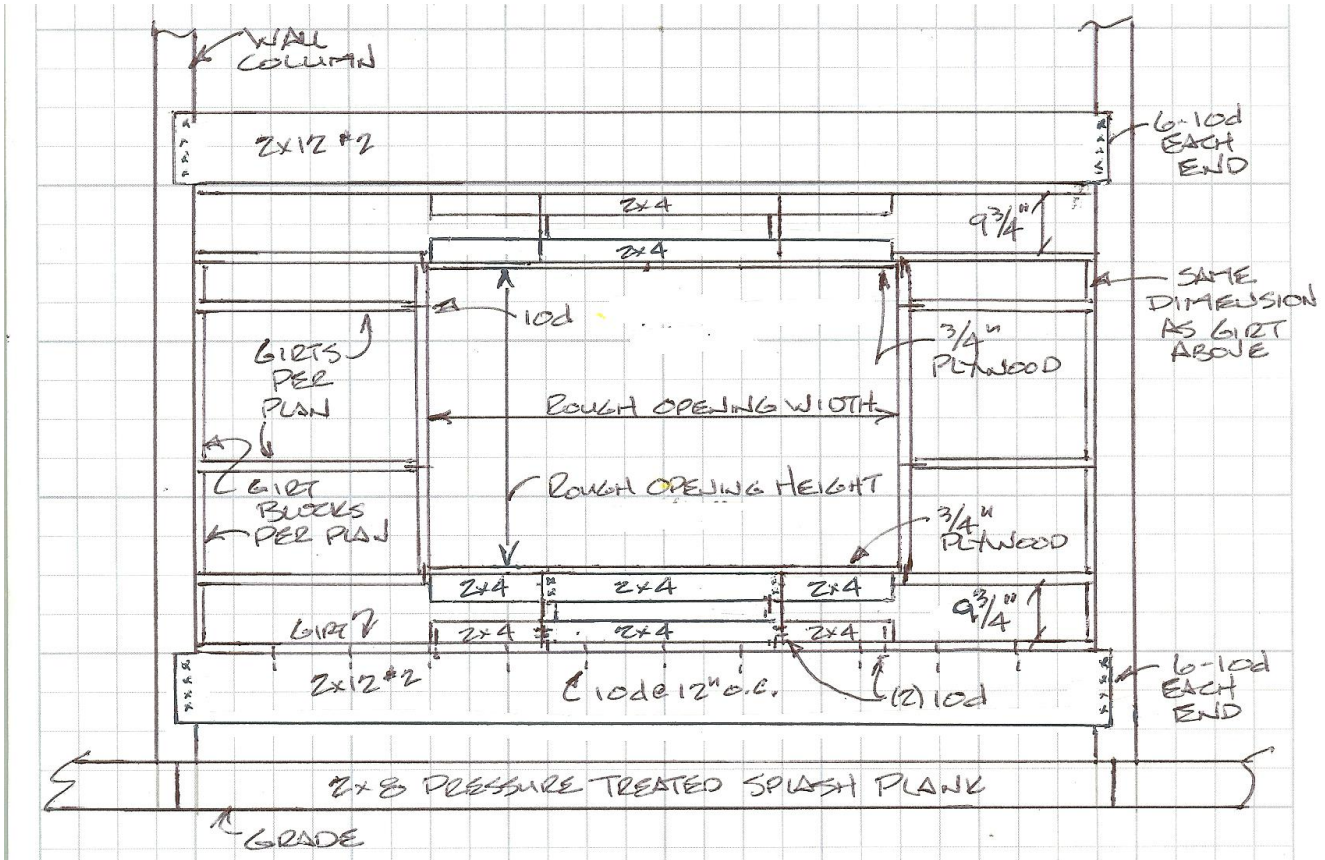 WALL
COLUMN
2x12 #2
6-10d
EACH
END
2x4
9 3/4"
2x4
10d
SAME
DIMENSION
AS GIRT
ABOVE
3/4"
PLYWOOD
GIRTS
PER
PLAN
ROUGH OPENING WIDTH
ROUGH OPENING HEIGHT
GIRT
BLOCKS
PER PLAN
3/4"
PLYWOOD
2x4
2x4
2x4
9 3/4"
GIRT
2x4
2x4
2x4
2x12 #2
10d @ 12" o.c.
(2) 10d
6-10d
EACH
END
2x8 PRESSURE TREATED SPLASH PLANK
GRADE